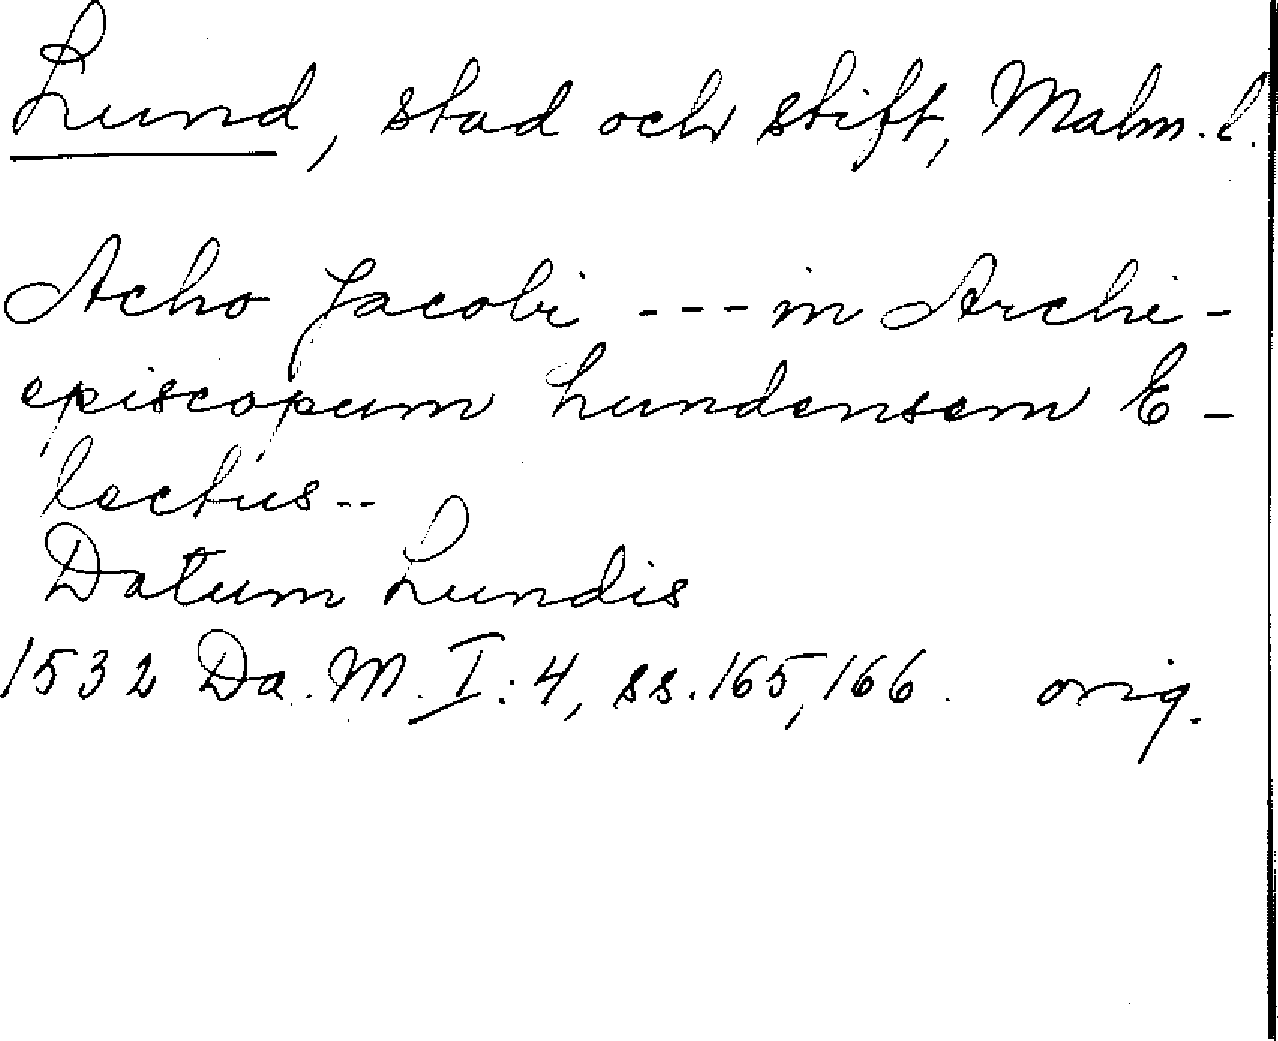 Lund, stad och stift, Malm. l.
Acho Jacobi --- in Archi-
episcopum lundensem E-
lectus--
Datum Lundis
1532 Da. M. I: 4, ss. 165, 166. orig.